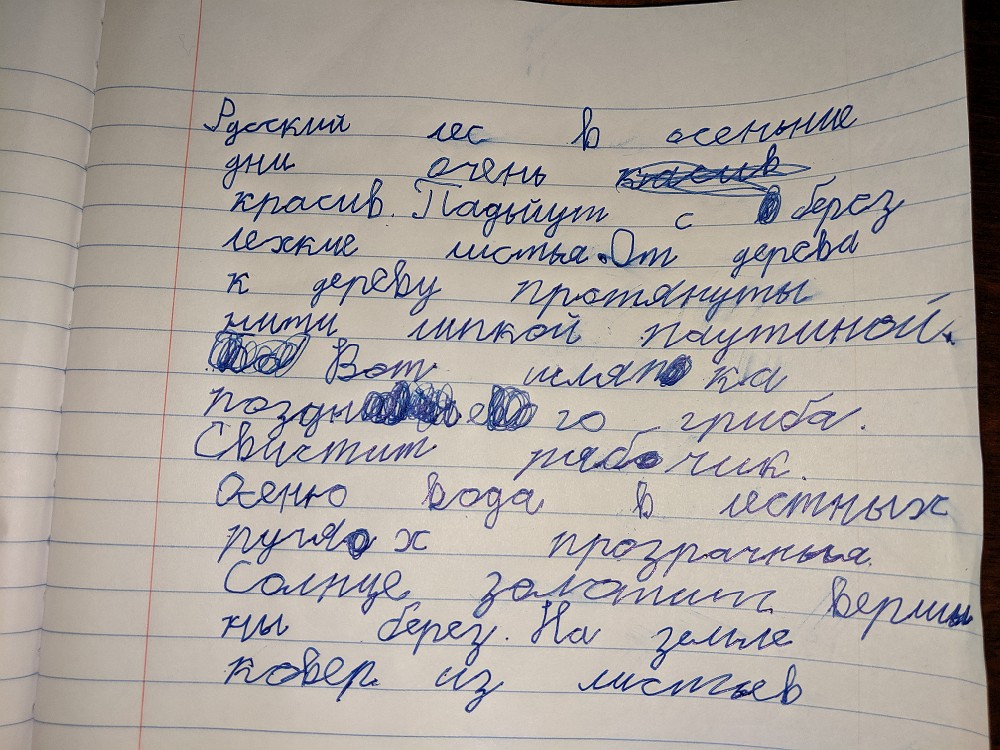 Русский лес в осеньние
дни очень
красив. Падьйут с берез
лехкие листья. От дерева
к дереву протянуты
нити липкой паутиной.
Вот шляпка
го гриба.
Свистит рябчик.
Осеню вода в лестных
ручях прозрачныя.
Солнце золотит вершы
ны берез. На земле
ковер из листьев